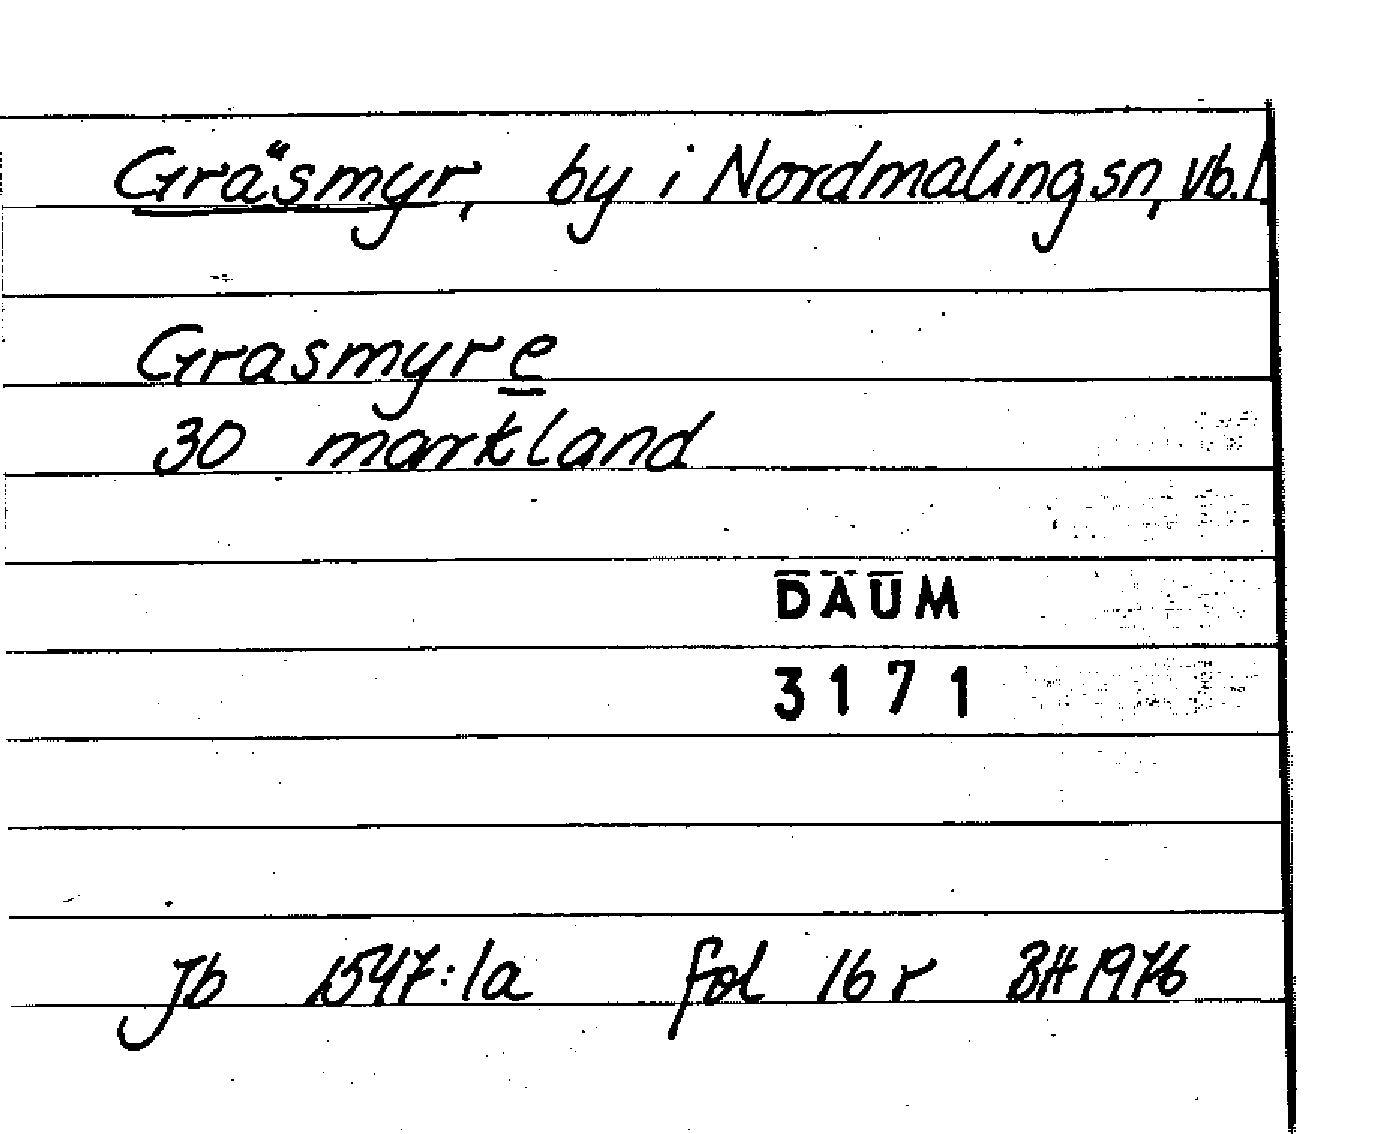 Gräsmyr, by i Nordmalingsn, Vb.l
Grasmyre
30 markland
DAUM
3171
Jb 1547:1a fol 16 r BH 1976